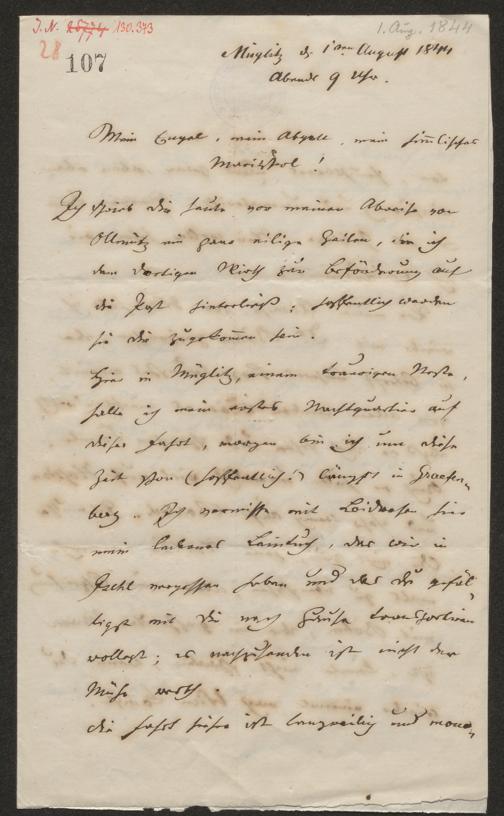 J. N. 25724 130.373
28
107
1. Aug. 1844
Müglitz d. 1ten August 1844
Abends 9 Uhr.
Mein Engel, mein Abgott, mein himmlisches
!
Ich schrieb dir heute vor meiner Abreise von
Ollmütz ein paar eilige Zeilen, die ich
dem dortigen Wirth zur Beförderung auf
die Post hinterließ; hoffentlich werden
sie dir zugekommen sein.
Hier in Müglitz, einem traurigen Neste,
halte ich mein erstes Nachtquartier auf
dieser Fahrt, morgen bin ich um diese
Zeit schon (hoffentlich!) längst in Graefen-
berg. Ich vermisse mit Leidwesen hier
mein Leintuch, das wir in
Ischl vergessen haben und das du gefäl-
ligst mit dir nach Hause transportiren
wollest; es nachzusenden ist nicht der
Mühe werth.
Die Fahrt hieher ist langweilig und mono-